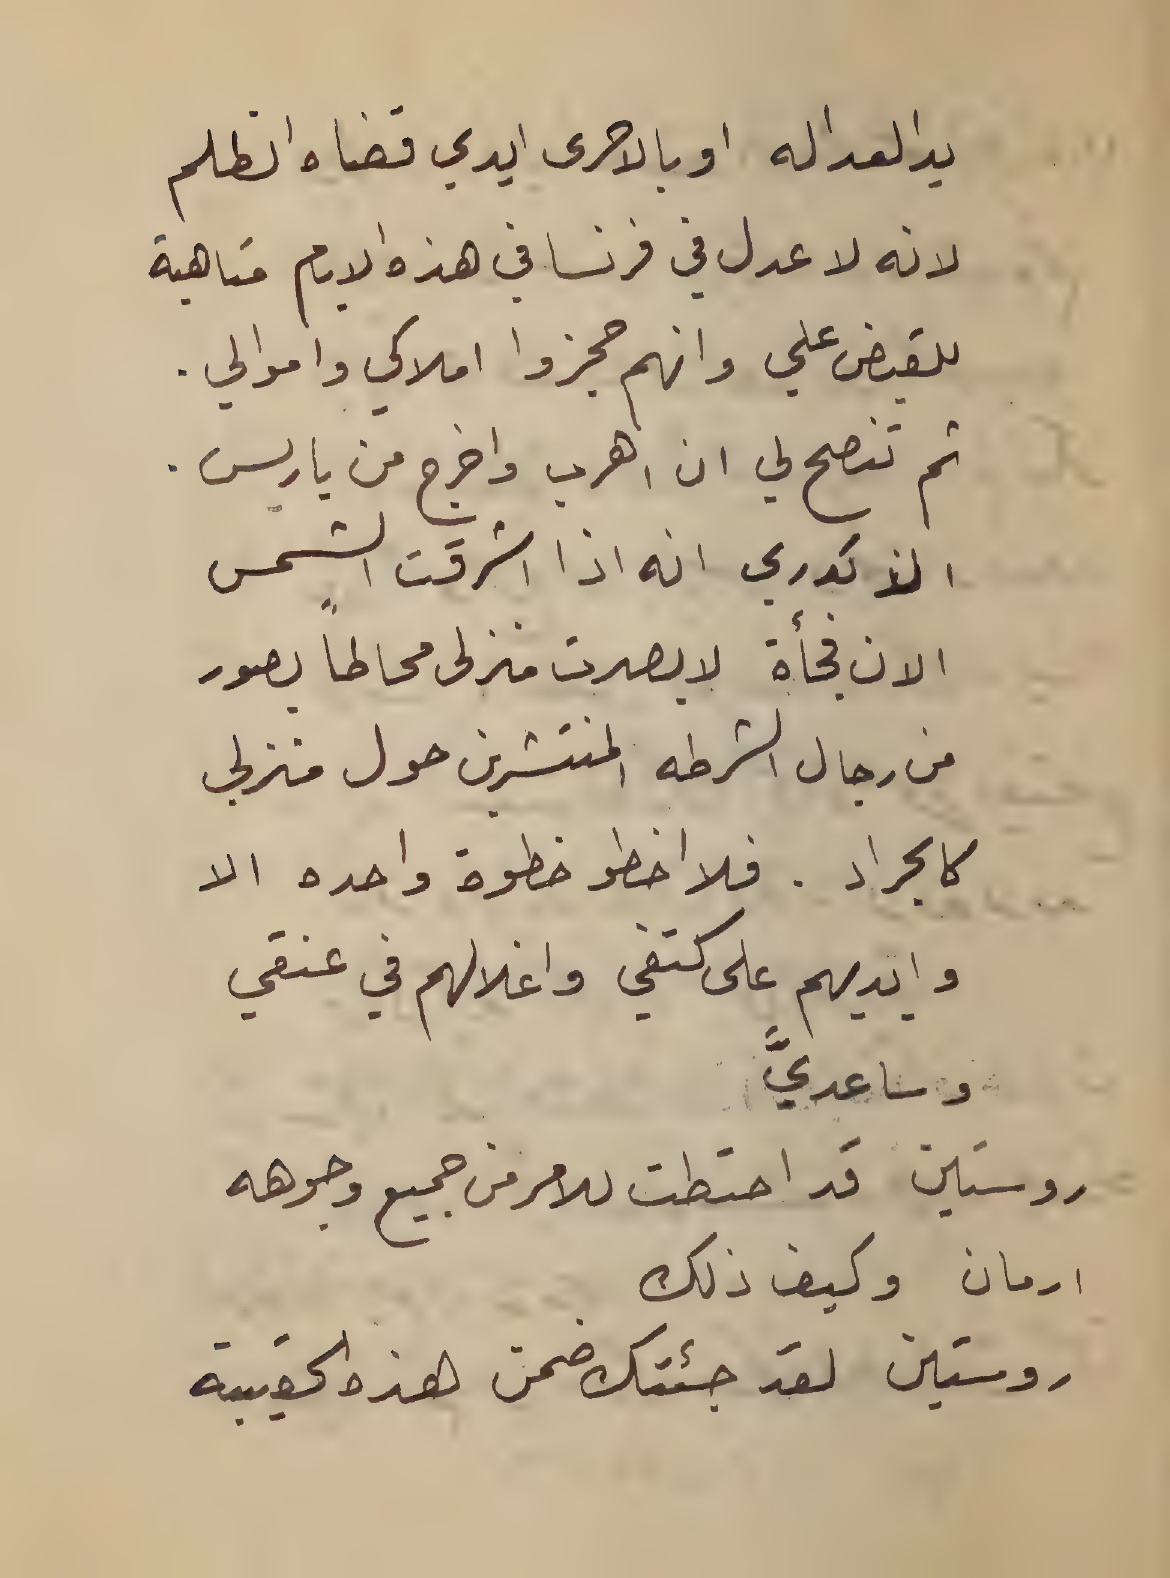 يد العداله او بالاحرى ايدي قضاه الظلم
لانه لا عدل في فرنسا في هذه الايام متاهبة
للقبض علي وانهم حجزوا املاكي واموالي .
ثم تنصح لي ان اهرب واخرج من باريس .
انه اذا اشرقت الشمس
الان فجأة لابصرت منزلى محاطاً بصور
من رجال الشرطه المنتشرين حول منزلي
كالجراد . فلا اخطو خطوة واحده الا
وايديهم على كتفي واغلالهم في عنقي
وساعديَّ
روستين قد احتطت للامر من جميع وجوهه
ارمان وكيف ذلك
روستين لقد جئتك ضمن هذه الحقيبة